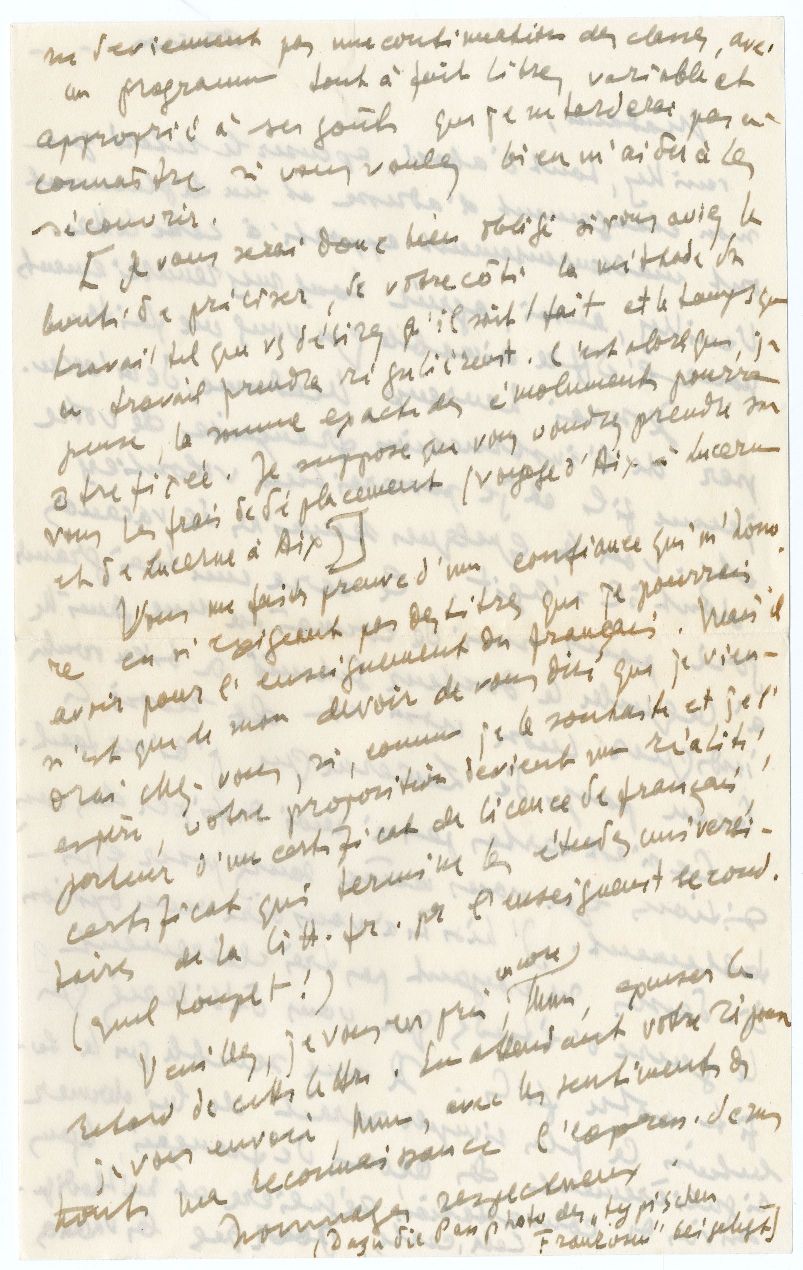 ne deviennent pas une continuation des classes, avec
un programme tout à fait libre, variable et
approprié à ses goûts que je ne tarderai pas à
connaître si vous voulez bien m'aider à les
découvrir.
[ Je vous serai donc bien obligé si vous aviez la
bonté de préciser, de votre côté la méthode du
travail tel que vs désirez qu'il soit fait et le temps que
ce travail prendra régulièremt. C'est alors que, je
pense, la somme exacte des émoluments pourra
être fixée. Je suppose que vous voudrez prendre sur
vous les frais de déplacement (voyage d'Aix à Lucerne
et de Lucerne à Aix)]
Vous me faites preuve d'une confiance qui m'hono-
re en n'exigeant pas des titres que je pourrais
avoir pour l'enseignement du français. Mais il
n'est que de mon devoir de vous dire que je vien-
drai chez vous, si, comme je le souhaite et je l'
espère, votre proposition devient une réalité,
porteur d'un certificat de licence de français,
certificat qui termine les études universi-
taires de la litt. fr. pr l'enseignemt second.
(quel toupet!)
Veuillez, je vous en prie encore, Mme, excuser le
retard de cette lettre. En attendant votre réponse
je vous envoie, Mme, avec les sentiments de
toute ma reconnaissance l'express. de mes
hommages respectueux.
(Dazu die Passphoto des "typischen
Franzosen" beigelegt)